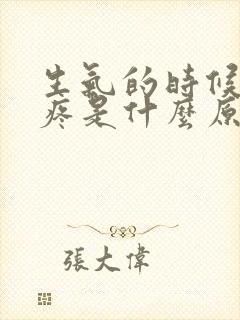 生氣的時候
疼是什麼原
張大偉